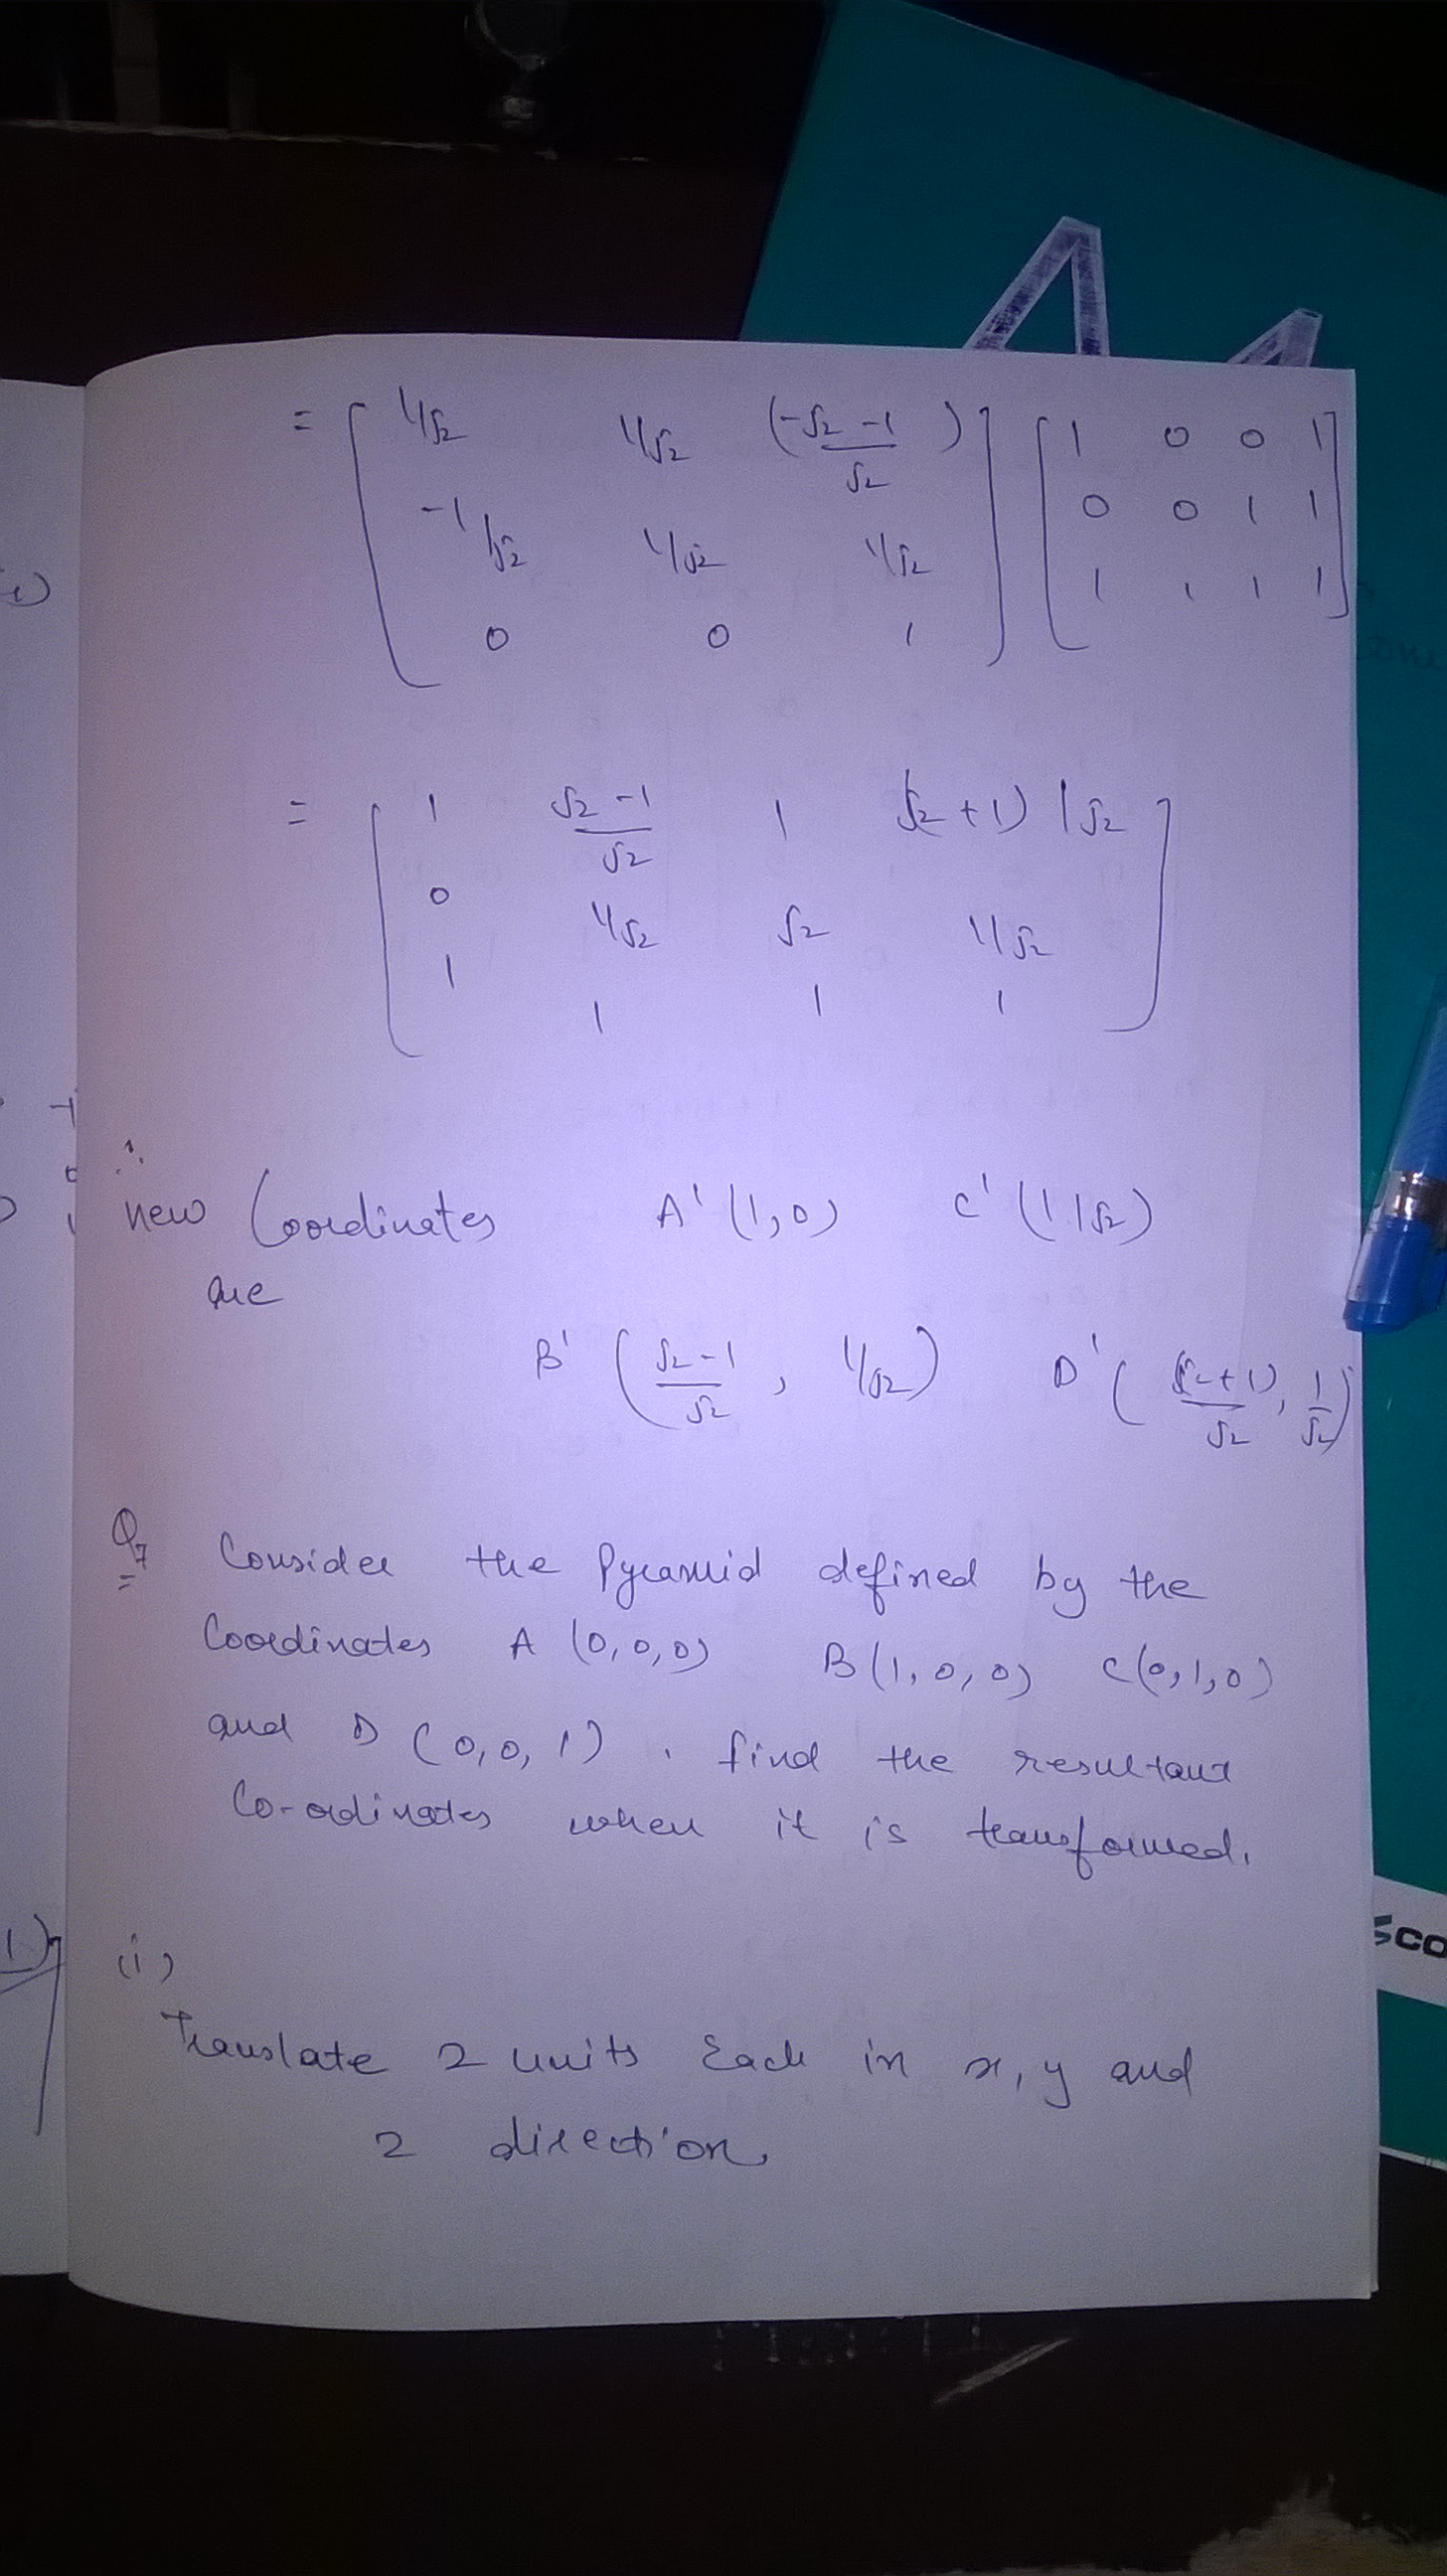 = [ 1/√2 1/√2 (-√2 -1 / √2) ] [ 1 0 0 1 ]
[ -1/√2 1/√2 1/√2 ] [ 0 0 1 1 ]
[ 0 0 1 ] [ 1 1 1 1 ]
= [ 1 √2 -1 / √2 1 (√2 + 1) / √2 ]
[ 0 1/√2 √2 1/√2 ]
[ 1 1 1 1 ]
∴
new Coordinates A' (1,0) C' (1 1√2)
are
B' ( √2-1 / √2 , 1/√2 ) D' ( (√2+1) / √2 , 1 / √2 )
Q7 Consider the Pyramid defined by the
Coordinates A (0,0,0) B(1,0,0) C(0,1,0)
and D (0,0,1) . find the resultant
Co-ordinates when it is transformed.
(i)
Translate 2 units Each in x, y and
z direction.